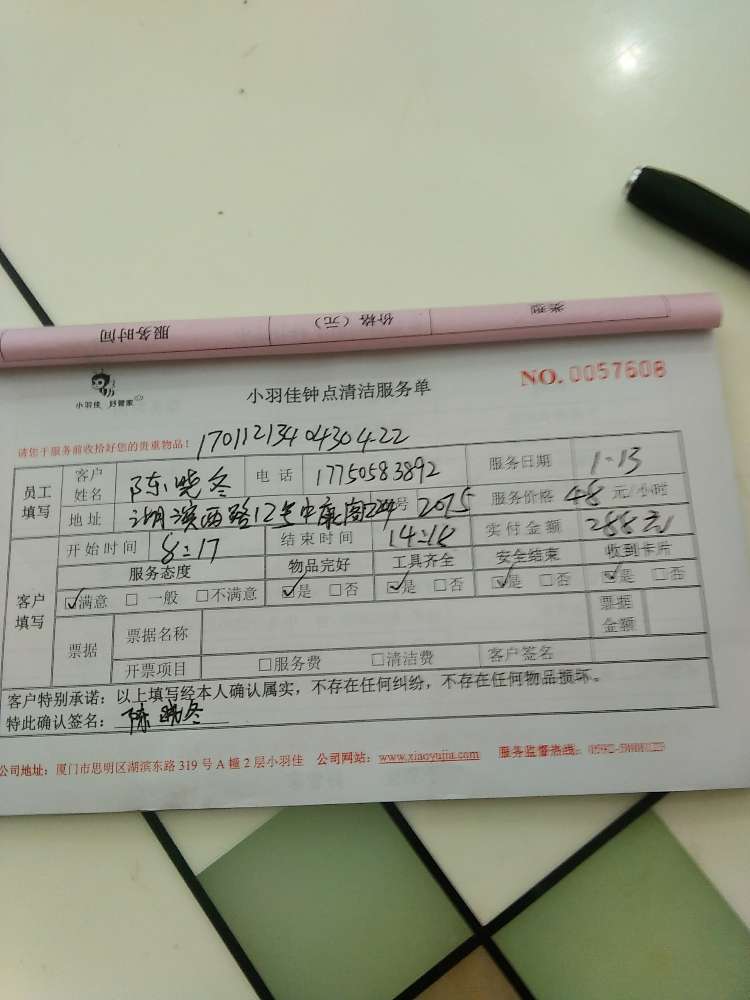 服务时间 价格（元） 类型
小羽佳 好管家
小羽佳钟点清洁服务单
NO. 0057608
请您于服务前收拾好您的贵重物品！
1701121340430422
员工填写 客户姓名 陈晓冬 电话 17750583892 服务日期 1-13
地址 湖滨西路12号中康阁 号 2015 服务价格 48 元/小时
客户填写 开始时间 8:17 结束时间 14:18 实付金额 288元
服务态度 物品完好 工具齐全 安全结束 收到卡片
☑满意 □一般 □不满意 ☑是 □否 ☑是 □否 ☑是 □否 ☑是 □否
票据 票据名称 票据金额
开票项目 □服务费 □清洁费 客户签名
客户特别承诺：以上填写经本人确认属实，不存在任何纠纷，不存在任何物品损坏。
特此确认签名：陈晓冬
公司地址：厦门市思明区湖滨东路319号A幢2层小羽佳 公司网站：www.xiaoyujia.com 服务监督热线：